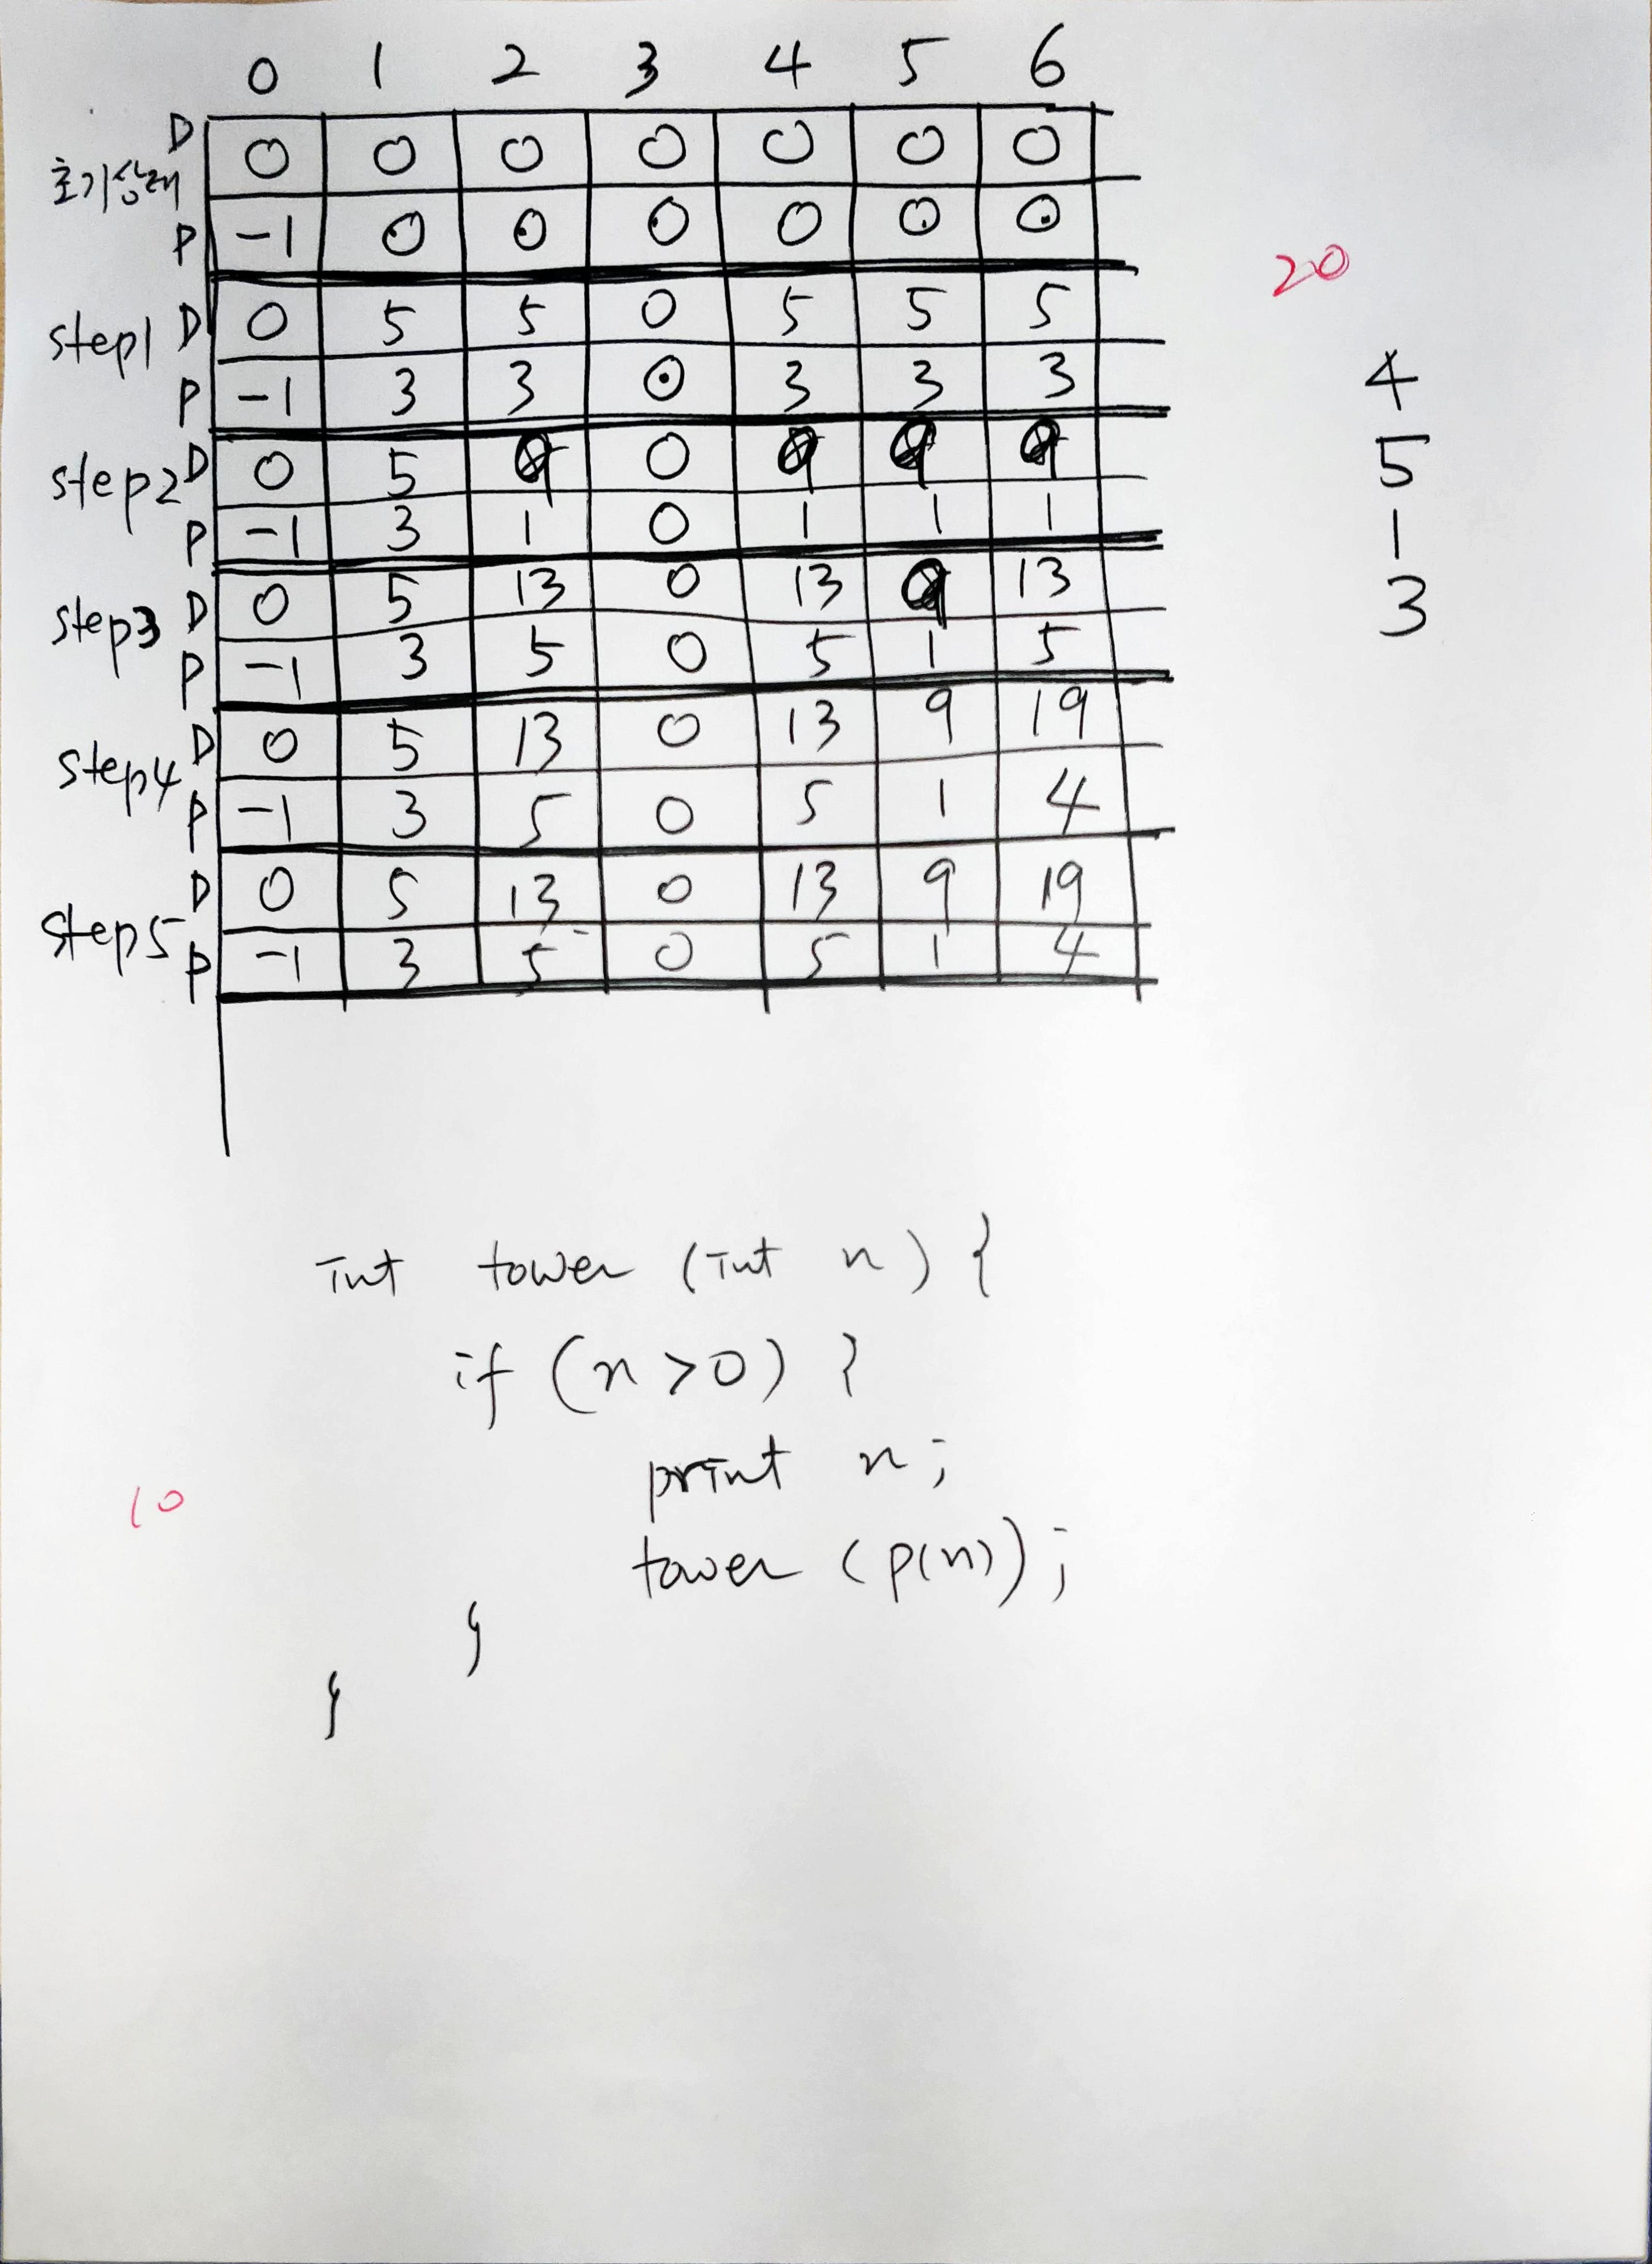 0 1 2 3 4 5 6
초기상태 D 0 0 0 0 0 0 0
P -1 0 0 0 0 0 0
20
step1 D 0 5 5 0 5 5 5
P -1 3 3 0 3 3 3
4
step2 D 0 5 9 0 9 9 9
5
P -1 3 1 0 1 1 1
1
step3 D 0 5 13 0 13 9 13
3
P -1 3 5 0 5 1 5
step4 D 0 5 13 0 13 9 19
P -1 3 5 0 5 1 4
step5 D 0 5 13 0 13 9 19
P -1 3 5 0 5 1 4
int tower (int n) {
if (n > 0) }
print n;
10
tower (p(n));
}
}